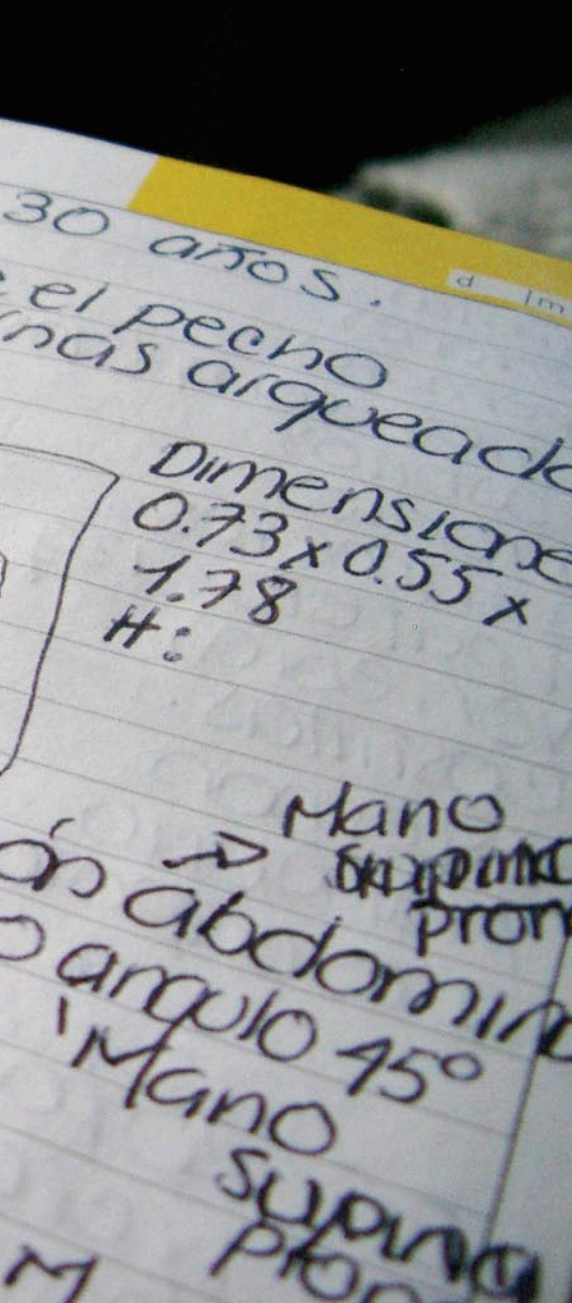 d m
30 años.
el pecho
nas arqueado
Dimensione
0.73 x 0.55 x
1.78
H:
Mano
→
pron
ón abdomin
o angulo 45°
Mano
supina
pron
M